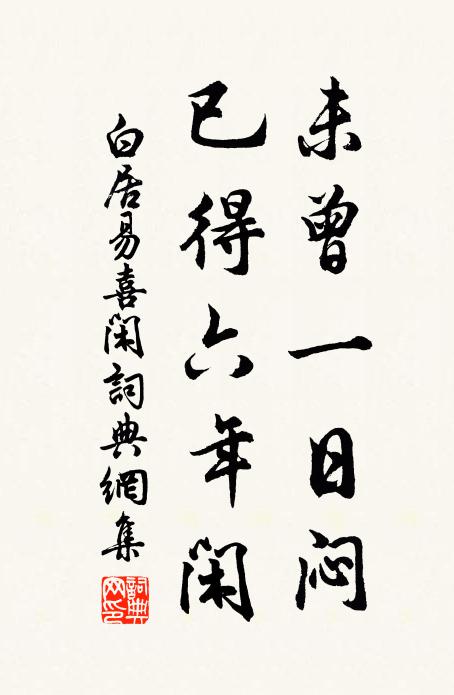 未曾一日闷
已得六年闲
白居易喜闲詞典網集
詞典网印